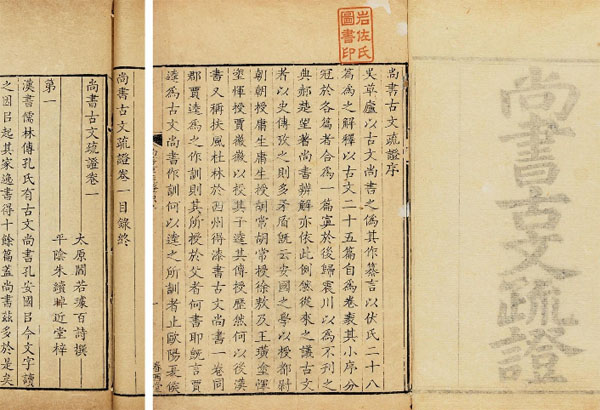 尚書古文疏證
岩佐氏
圖書印
尚書古文疏證序
吳草廬以古文尚書之偽其作纂言以伏氏二十八
篇為之解釋以古文二十五篇自為卷袠其小序分
冠於各篇者合為一篇寘於後歸震川以為不刊之
典郝楚望著尚書辨解亦依此例然從來之議古文
者以史傳攷之則多矛盾既云安國之學以授都尉
朝朝授庸生庸生授胡常胡常授徐敖及王璜塗惲
塗惲授賈徽徽以授其子逵其傳授歷然何以後漢
書又稱扶風杜林於西州得漆書古文尚書一卷同
郡賈逵為之作訓則其所授於父者何書耶既言賈
逵為古文尚書作訓何以逵之所訓者止歐陽夏侯
一
眷西堂
尚書古文疏證卷一目錄終
尚書古文疏證卷一
太原閻若璩百詩撰
平陰朱續晫近堂梓
第一
漢書儒林傳孔氏有古文尚書孔安國㠯今文字讀
之因㠯起其家逸書得十餘篇蓋尚書茲多於是矣